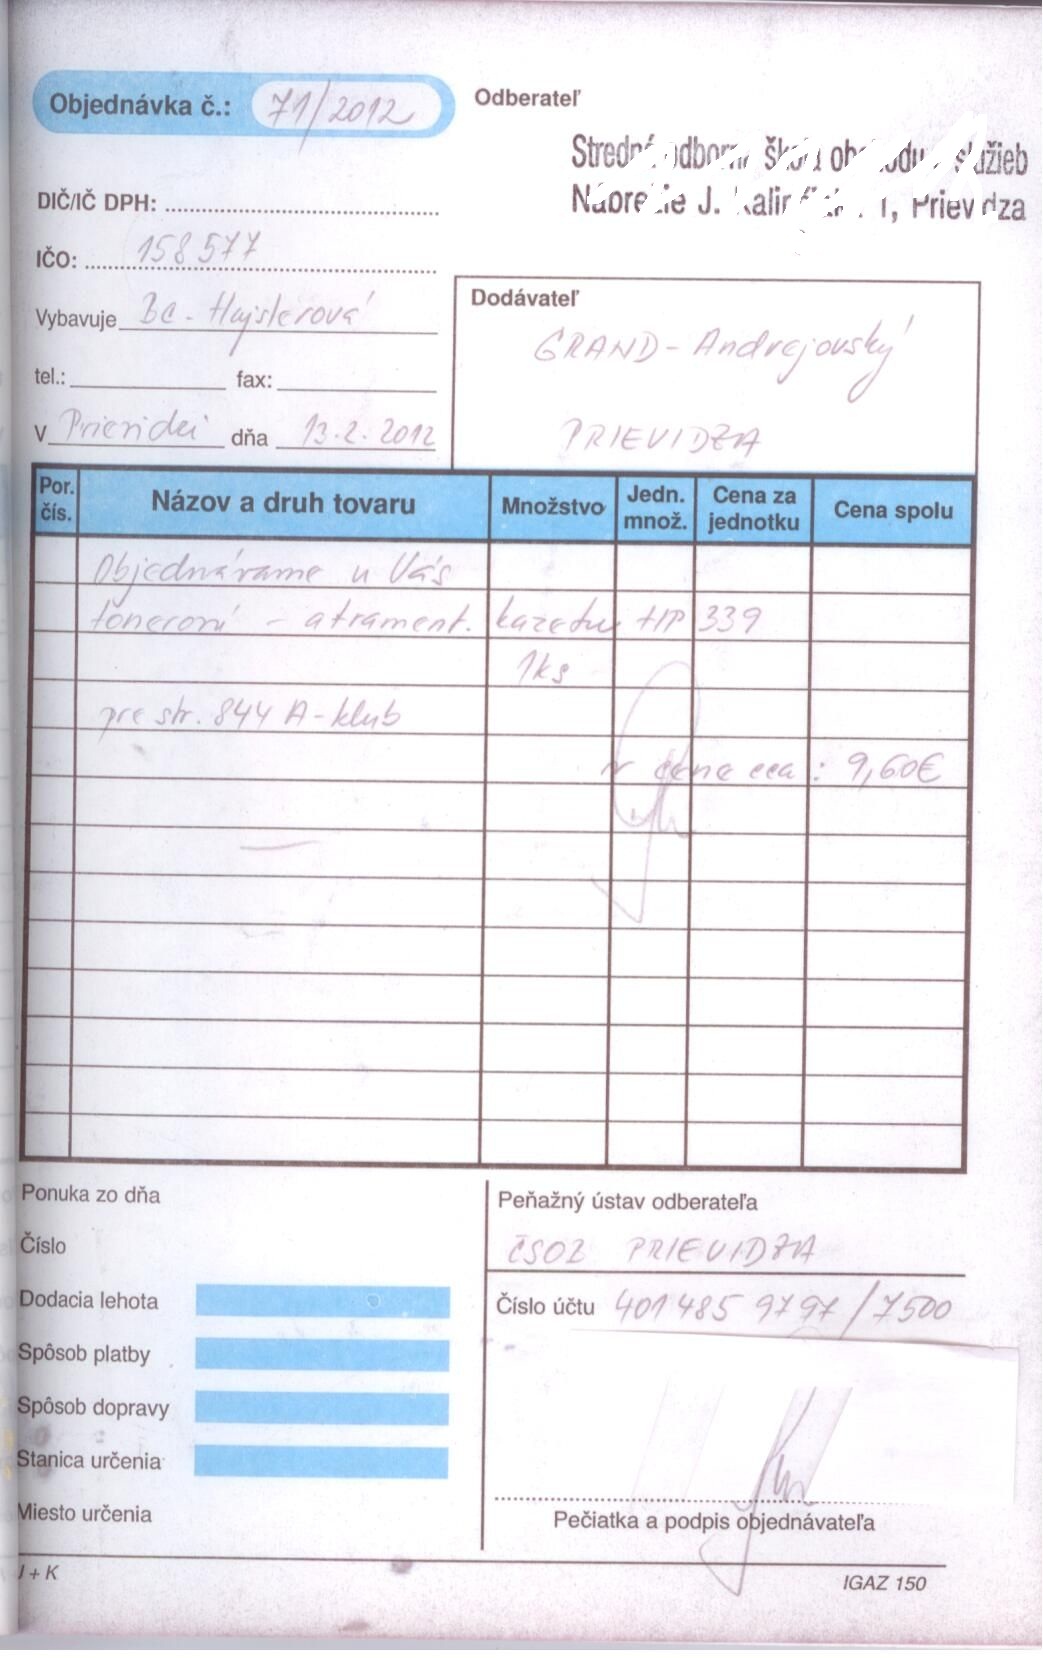 Objednávka č.: 71/2012
Odberateľ
Stredná odborná škola obchodu a služieb
Nábrežie J. Kalinčiaka 1, Prievidza
DIČ/IČ DPH:
IČO: 158577
Vybavuje Bc. Hajslerová
tel.: fax:
V Prievidzi dňa 13.2.2012
Dodávateľ
GRAND-Andrejovský
PRIEVIDZA
Por. čís. Názov a druh tovaru Množstvo Jedn. množ. Cena za jednotku Cena spolu
Objednávame u Vás
tonerovú - atrament. kazetu HP 339
1ks
pre str. 844 A-klub
v cene cca: 9,60€
Ponuka zo dňa
Číslo
Dodacia lehota
Spôsob platby
Spôsob dopravy
Stanica určenia
Miesto určenia
Peňažný ústav odberateľa
ČSOB PRIEVIDZA
Číslo účtu 401 485 9797/7500
Pečiatka a podpis objednávateľa
J + K
IGAZ 150